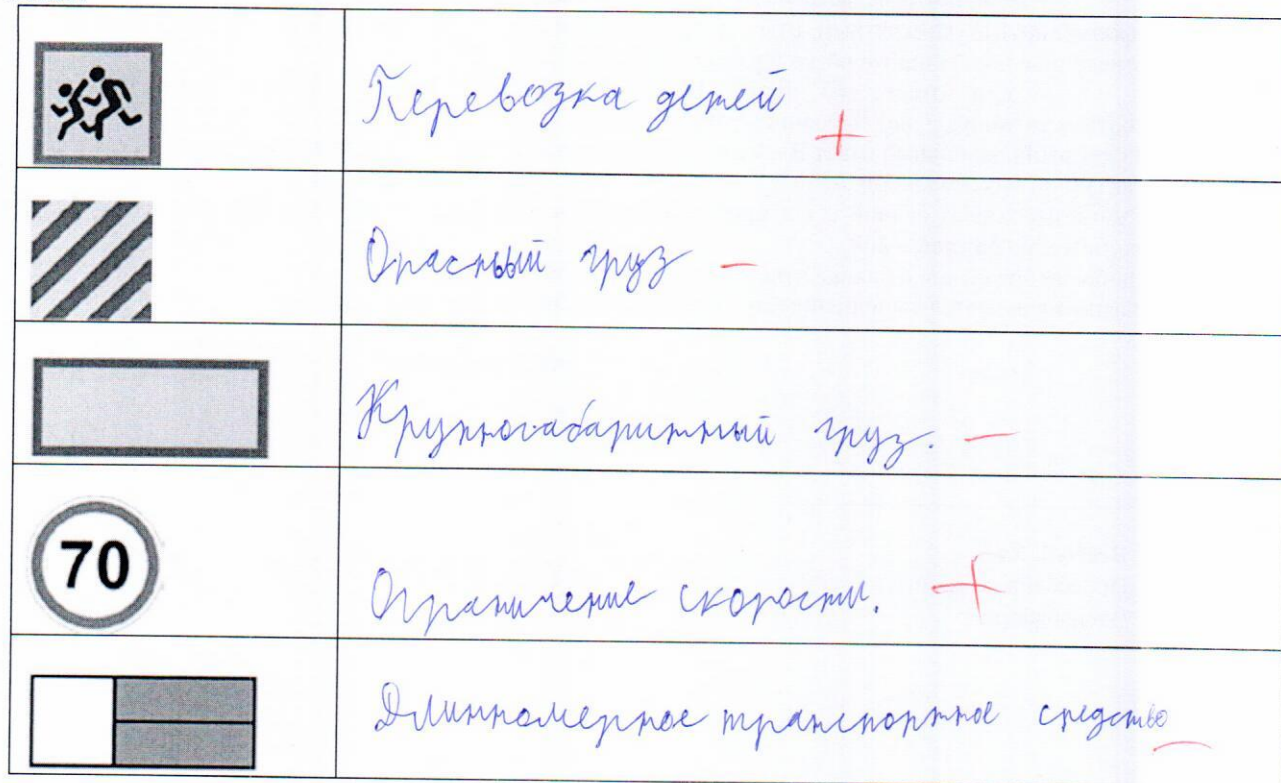 Перевозка детей +
Опасный груз -
Крупногабаритный груз. -
70
Ограничение скорости. +
Длинномерное транспортное средство -